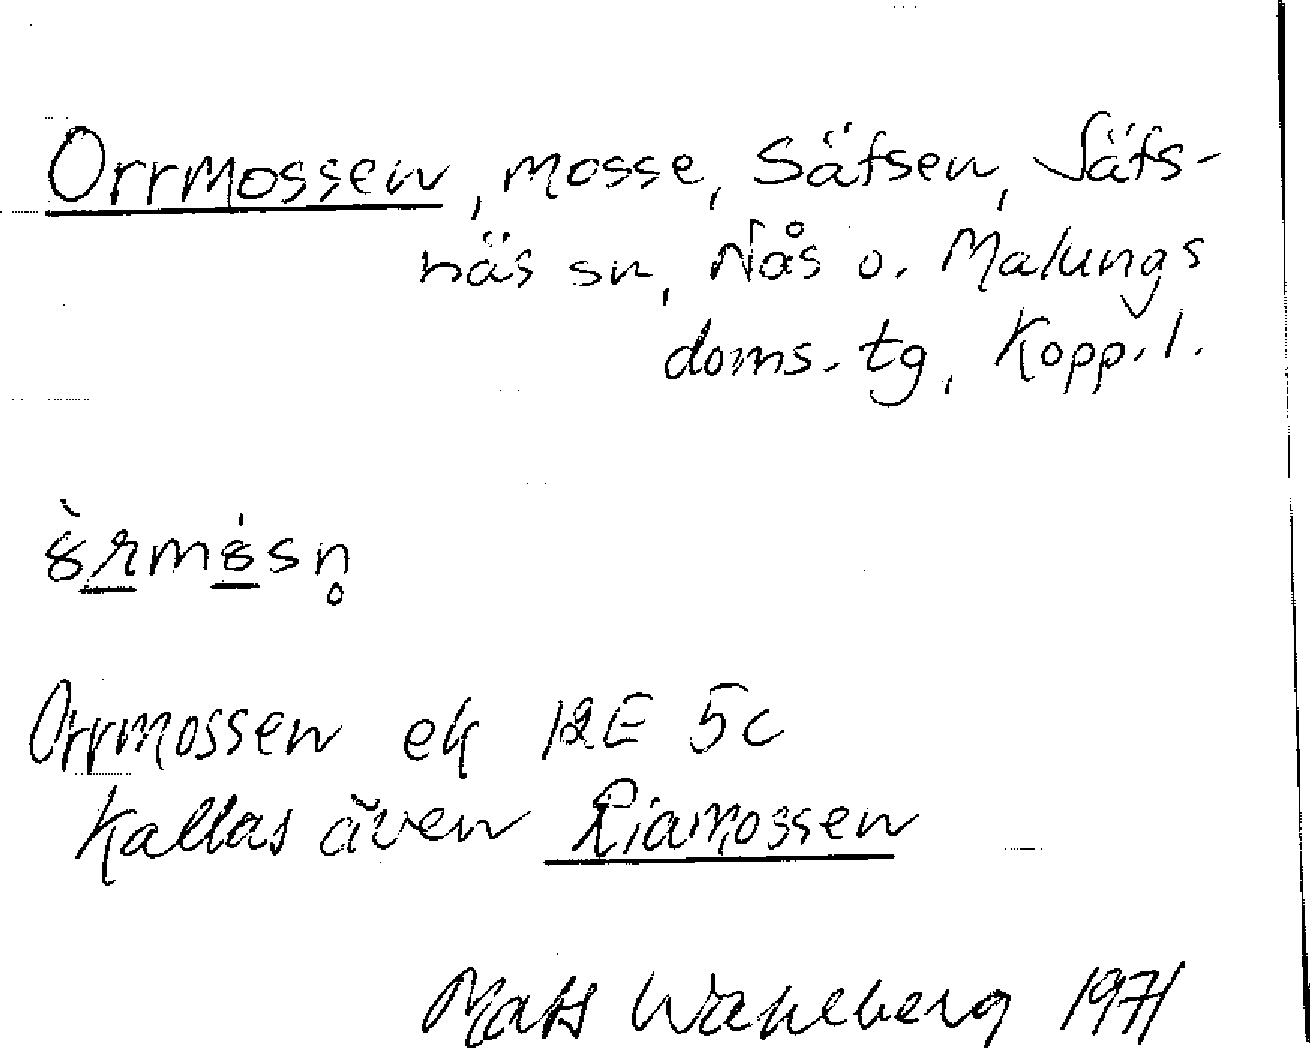 Orrmossen, mosse, Säfsen, Säfs-
näs sn, Nås o. Malungs
doms. tg, Kopp. l.
Orrmossen ek 12E 5c
kallas även Liamossen
Mats Wahlberg 1971